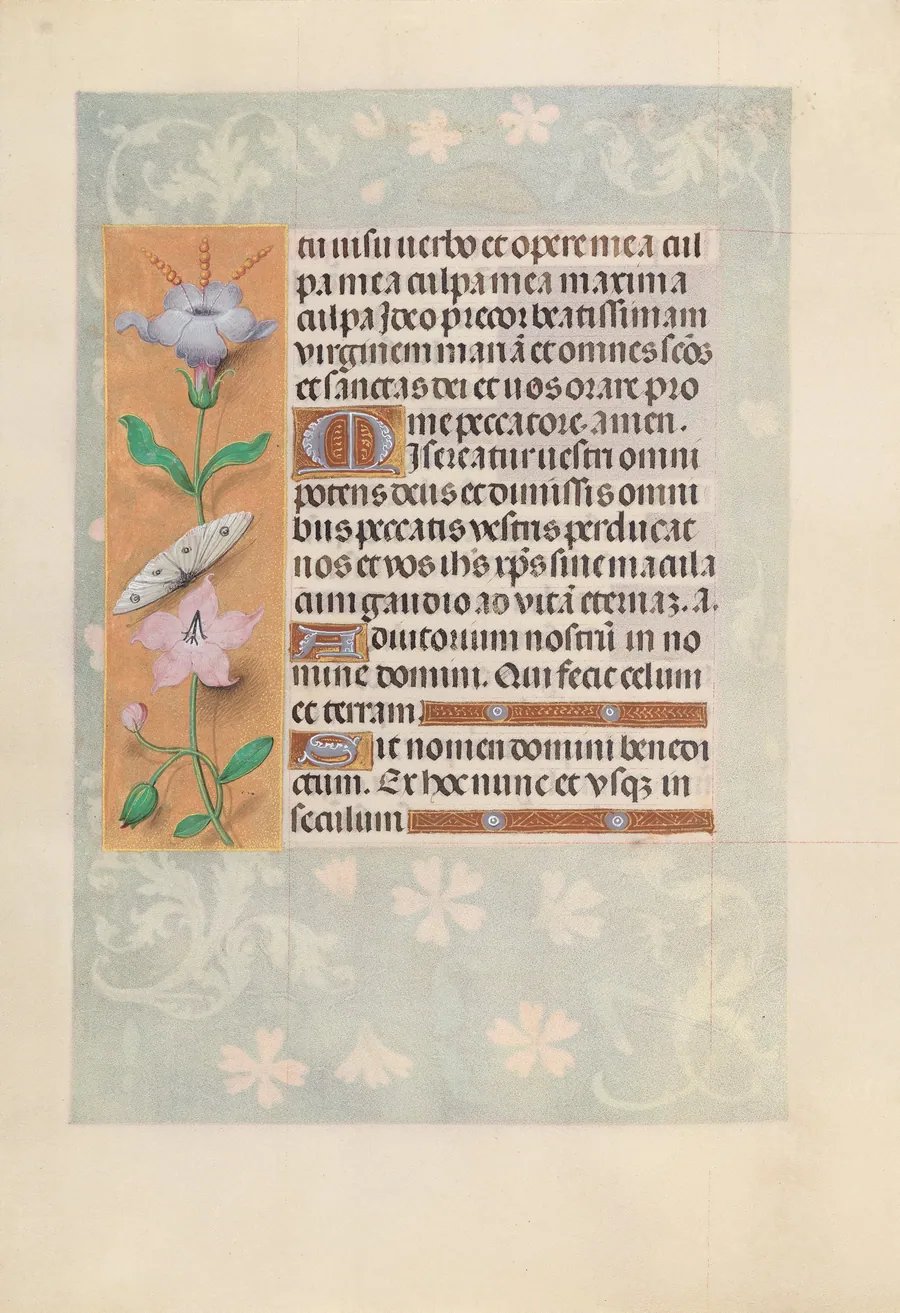 tu uisu uerbo et opere mea cul
pa mea culpa mea maxima
culpa Ideo precor beatissimam
virginem mariā et omnes scōs
et sanctas dei et uos orare pro
me peccatore. amen.
Misereatur uestri omni
potens deus et dimissis omni
bus peccatis vestris perducat
nos et vos ih̄s xp̄s sine macula
cum gaudio ad vitā eternaꝫ. A.
Adiutorium nostrū in no
mine domini. Qui fecit celum
et terram.
Sit nomen domini benedi
ctum. Ex hoc nunc et vsqꝫ in
seculum